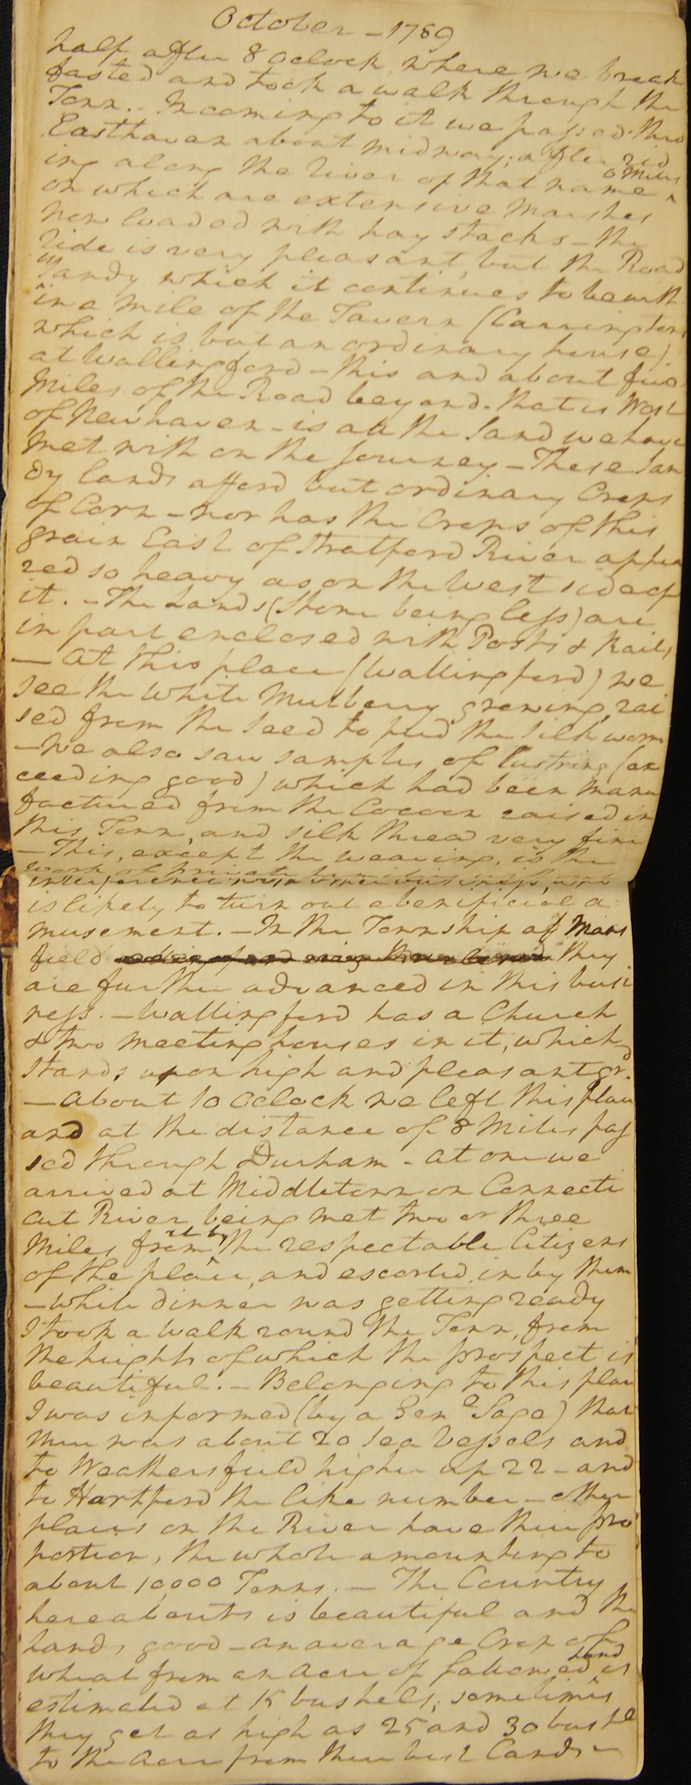 October - 1789
half after 8 Oclock, where we break
fasted and took a walk through the
Town. - In coming to it we passed thro
Easthaven about midway; after rid
ing along the River of that name 6 Miles
on which are extensive Marshes
now loaded with hay stacks - the
ride is very pleasant, but the Road
Sandy which it continues to be with
in a mile of the Tavern (Carringtons
which is but an ordinary house)
at Wallingford - this and about five
Miles of the Road beyond - that is West
of New haven - is all the Sand we have
met with on the journey - These San
dy Lands afford but ordinary Crops
of Corn - nor has the Crops of this
grain East of Stratford River appea
red so heavy as on the West side of
it. - The Lands (Stone being less) are
in part enclosed with Posts & Rails
- At this place (Wallingford) we
see the white Mulberry growing, rai
sed from the Seed to feed the Silkworm
- We also saw samples of lustring (ex
ceeding good) which had been manu
factured from the Cocoon raised in
this Town, and silk thread very fine
- This, except the weaving, is the
work of private families without
interference with other business, and
is likely to turn out a beneficial a
musement. - In the Township of Mans
field they
are further advanced in this busi
ness. - Wallingford has a Church
& two meeting houses in it, which
stands upon high and pleasant grd.
- About 10 Oclock we left this place
and at the distance of 8 Miles pas
sed through Durham - At one we
arrived at Middletown on Connecti
cut River being met two or three
Miles from it by the respectable Citizens
of the place, and escorted in by them
- While dinner was getting ready
I took a walk round the Town, from
the heights of which the prospect is
beautiful. - Belonging to this place
I was informed (by a Genl Sage) that
there was about 20 Sea Vessels and
to Weathersfield higher up 22 - and
to Hartford the like number - other
places on the River have their pro
portion, the whole amounting to
about 10,000 Tonns. - The Country
hereabouts is beautiful and the
Lands good - an average Crop of
wheat from an Acre of fallowed Land is
estimated at 15 bushels; sometimes
they get as high as 25 and 30 bushls
to the Acre from their best Lands -